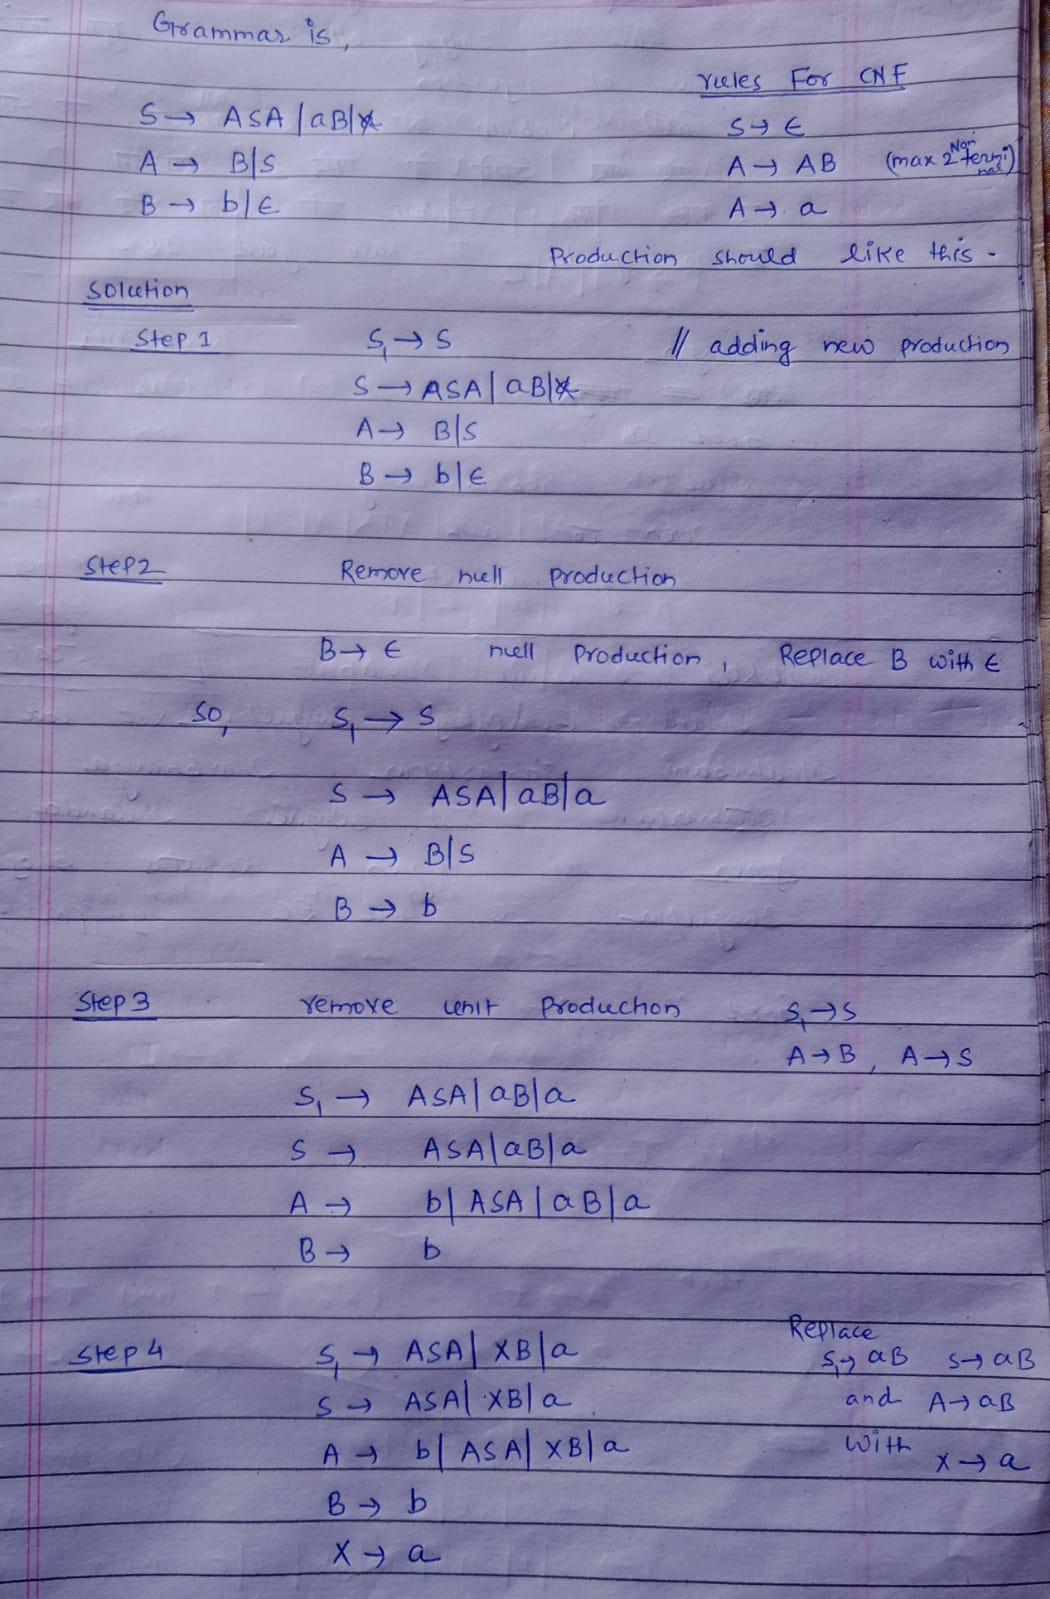 Grammar is,
rules For CNF
S → ASA | aB |
S → ϵ
A → B|S
A → AB (max 2 Non terminal)
B → b|ϵ
A → a
Production should like this -
Solution
Step 1 S₁ → S // adding new production
S → ASA | aB|
A → B|S
B → b|ϵ
Step 2 Remove null production
B → ϵ null production, Replace B with ϵ
So, S₁ → S
S → ASA | aB | a
A → B|S
B → b
Step 3 remove unit production S₁ → S
A → B, A → S
S₁ → ASA | aB | a
S → ASA | aB | a
A → b | ASA | aB | a
B → b
Replace
Step 4 S₁ → ASA | XB | a S₁ → aB S → aB
S → ASA | XB | a and A → aB
A → b | ASA | XB | a with X → a
B → b
X → a